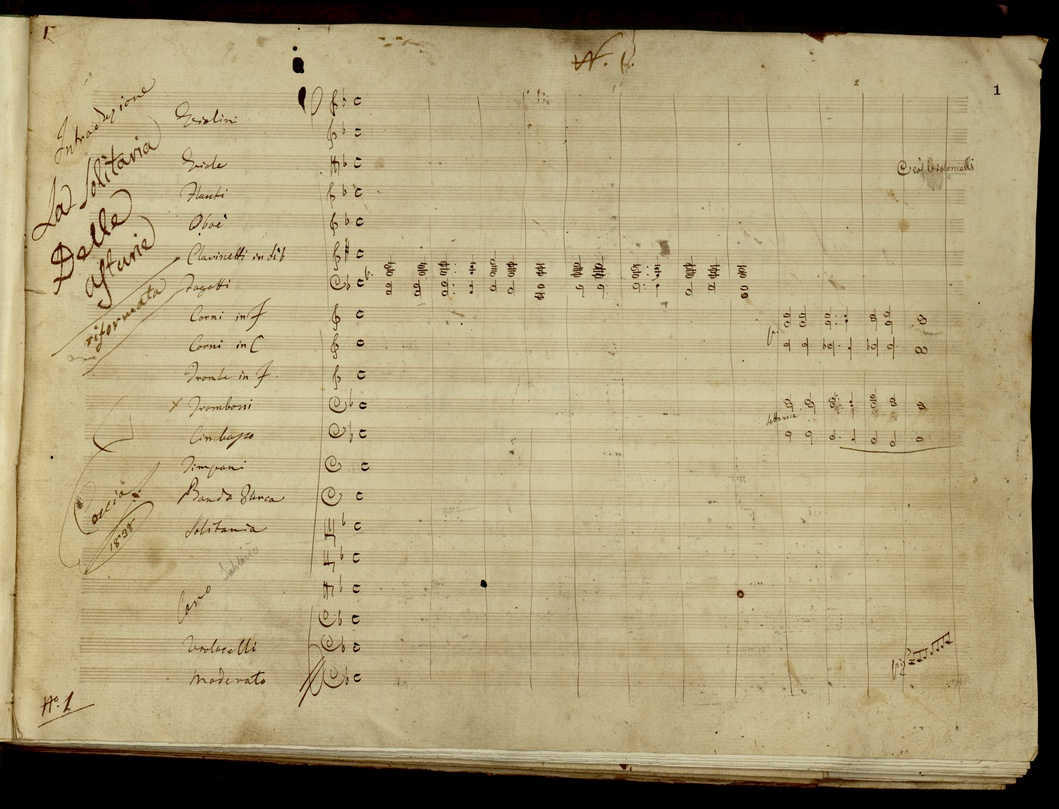 1
N. 1.
1
2
Introduzione
La Solitaria
Delle
Asturie
riformata
Violini
Viole
Flauti
Oboè
Clarinetti in Sib
Fagotti
Corni in F
Corni in C
Trombe in F.
x Tromboni
Cimbasso
Timpani
Banda Turca
Solitaria
Coro
Violoncelli
Moderato
Coi Violoncelli
Coccia
1838
No. 1